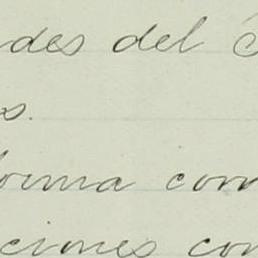 des del
s.
forma com
ciones con